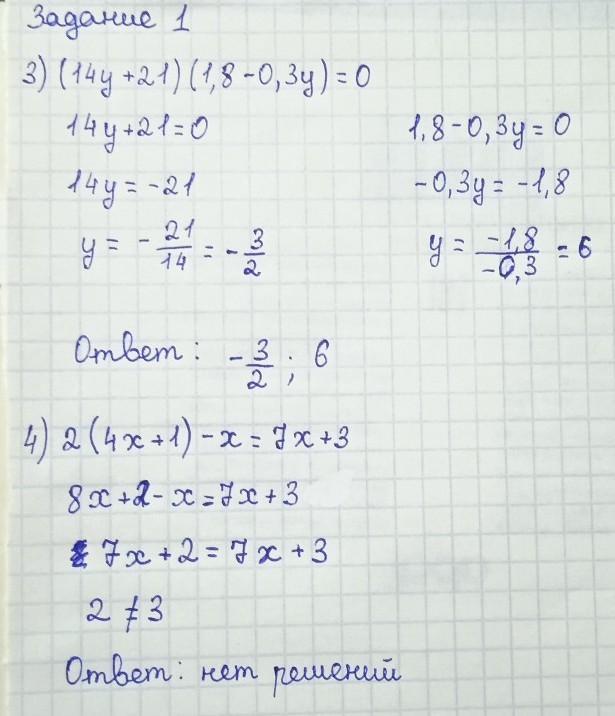 Задание 1
3) (14y+21)(1,8-0,3y)=0
14y+21=0 1,8-0,3y=0
14y=-21 -0,3y=-1,8
y = -21/14 = -3/2 y = -1,8/-0,3 = 6
Ответ: -3/2; 6
4) 2(4x+1)-x=7x+3
8x+2-x=7x+3
7x+2=7x+3
2≠3
Ответ: нет решений